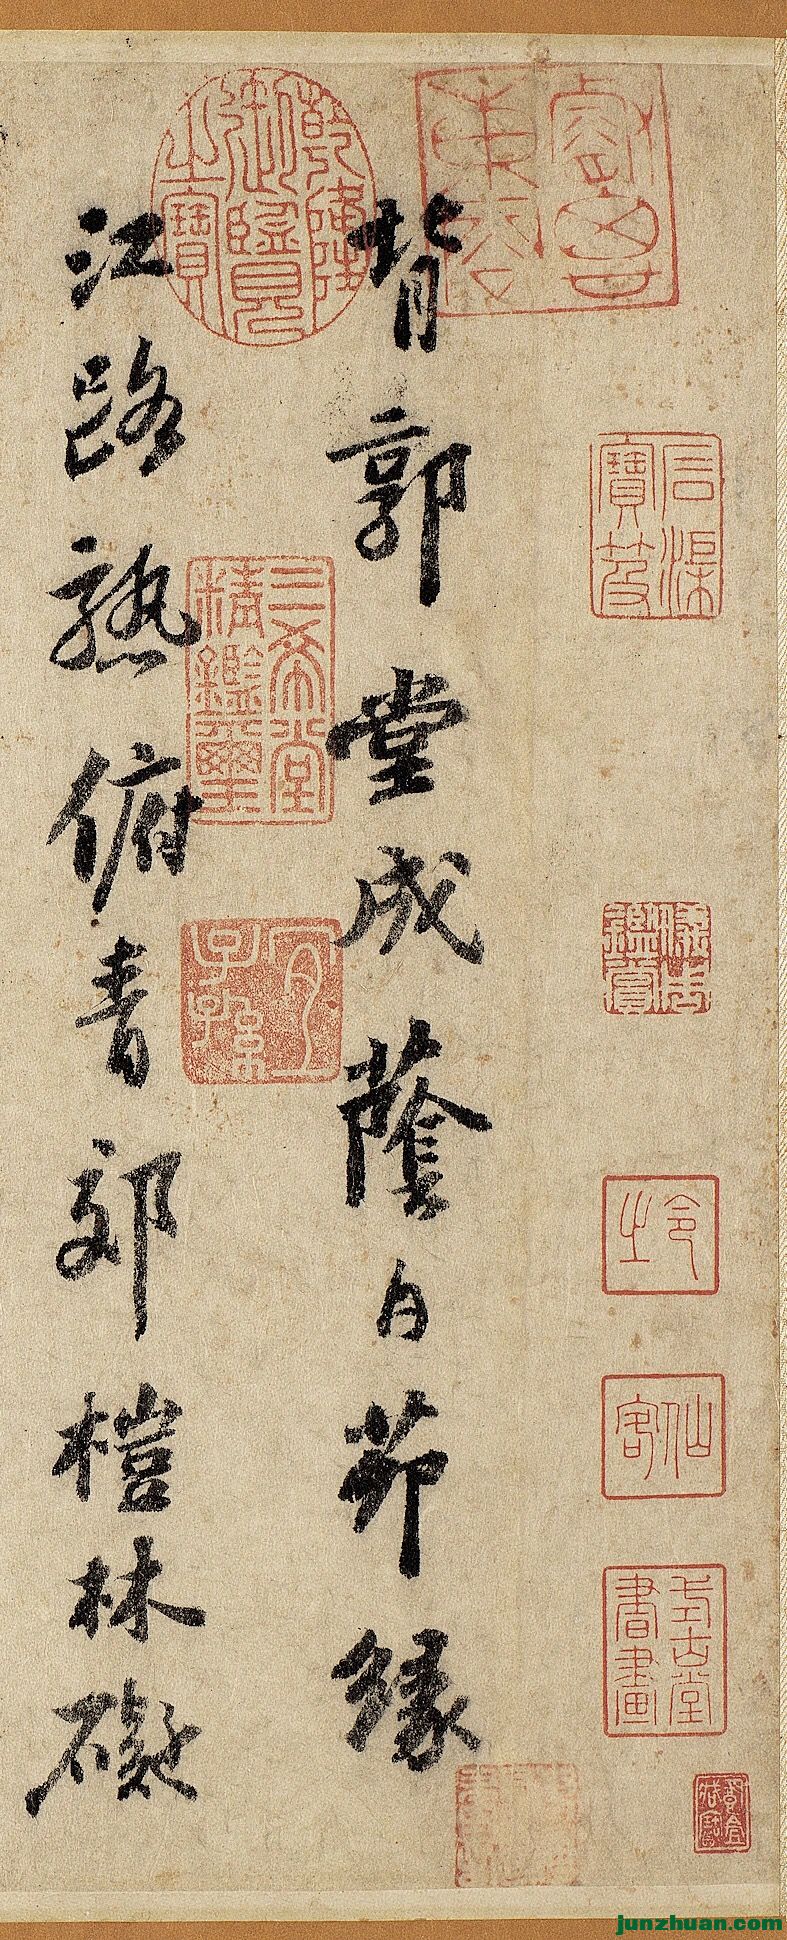 背郭堂成蔭白茆緣
江路熟俯青郊榿林礙
乾隆御覽之寶
三希堂精鑑璽
宜子孫
石渠寶笈
仙客
式古堂書畫
junzhuan.com